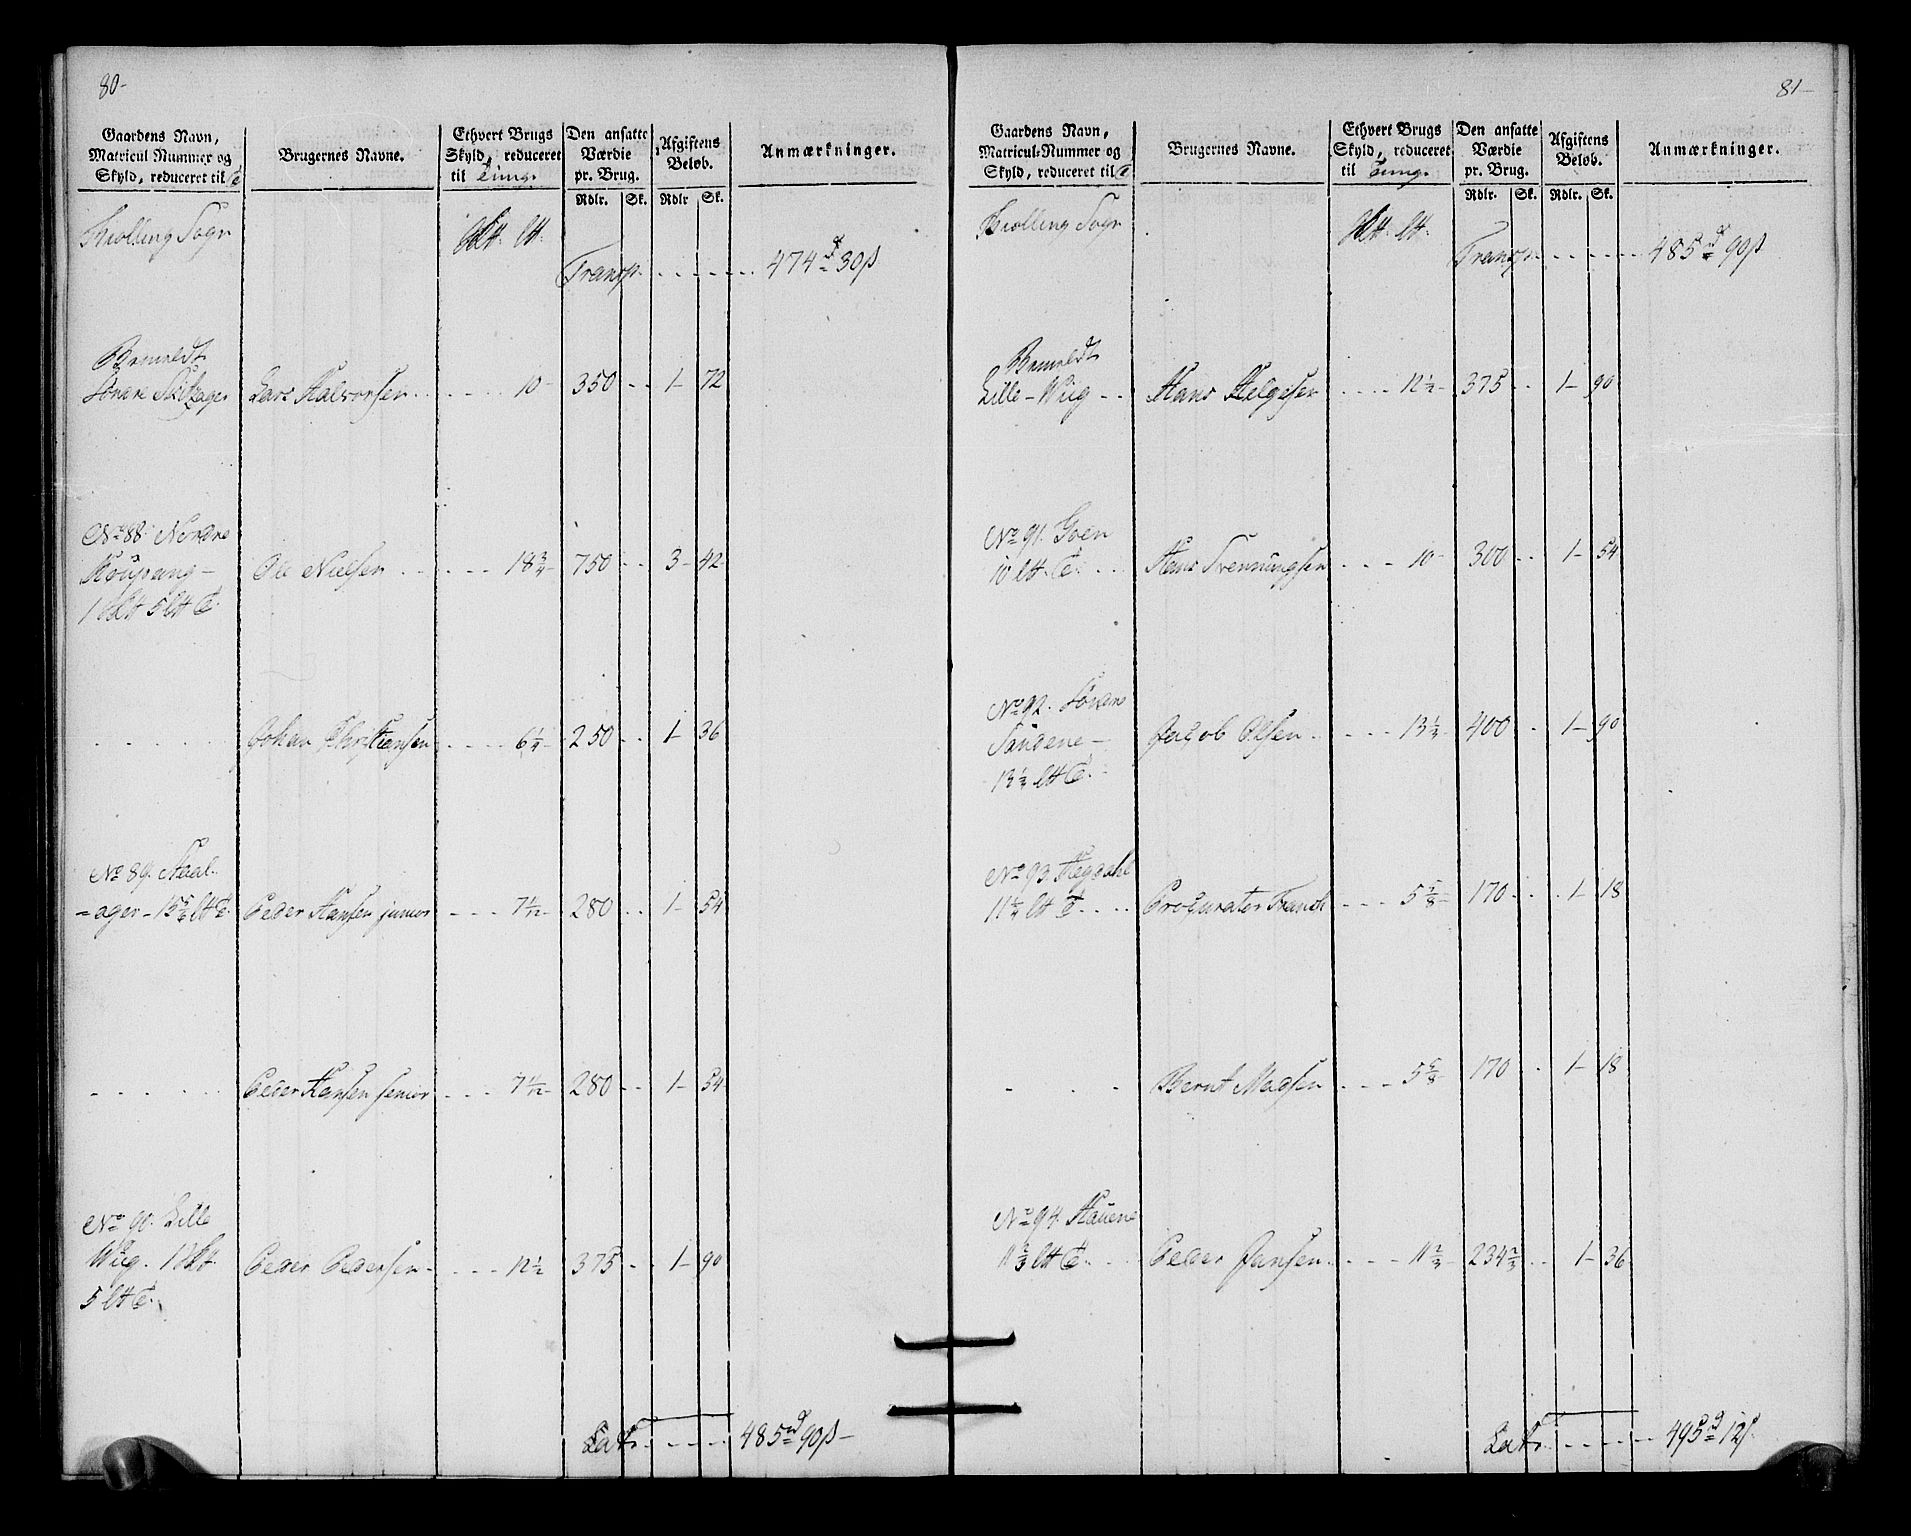 80-
Gaardens Navn, Matricul-Nummer og Skyld, reduceret til
Brugernes Navne.
Ethvert Brugs Skyld, reduceret til Tunge
Den ansatte Værdie pr. Brug.
Afgiftens Beløb.
Anmærkninger.
Rdlr. Sk. Rdlr Sk.
Tiølling Sogn
Transp. 474 d 30 ß
Bemeldt
Søndre Lars Halvorsen 10 350 1 72
No 88. Nordre
Koupang Ole Nielsen 18 3/4 750 3 42
Johan Christiansen 6 1/4 250 1 36
No 89. Haal-
=ager Peder Hansen junior 7 1/12 280 1 54
Peder Hansen senior 7 1/12 280 1 54
No 90. Lille
Wiig Peder Pedersen 12 1/2 375 1 90
Lats 485 d 90 ß
81-
Gaardens Navn, Matricul-Nummer og Skyld, reduceret til
Brugernes Navne.
Ethvert Brugs Skyld, reduceret til Tunge
Den ansatte Værdie pr. Brug.
Afgiftens Beløb.
Anmærkninger.
Rdlr. Sk. Rdlr. Sk.
Tiølling Sogn
Transp. 485 d 90 ß
Bemeldt
Lille-Wiig Hans Helgesen 12 1/2 375 1 90
No 91. Goen
Hans Trenningsen 10 300 1 54
No 92. Søndre
Sandene Jacob Olsen 13 1/3 400 1 90
No 93. Hegdahl
Procurator 5 5/8 170 1 18
Bernt Madsen 5 5/8 170 1 18
No 94. Hauene
Peder Jansen 11 2/3 234 2/3 1 36
Lats 495 d 12 ß